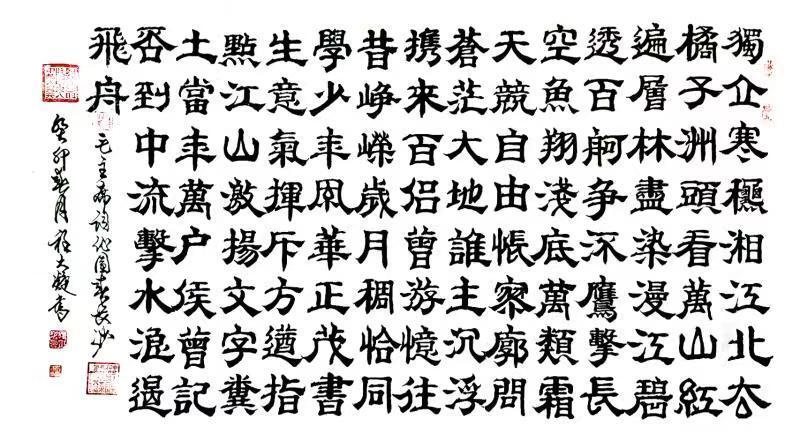 獨立寒穐湘江北去
橘子洲頭看萬山紅
遍層林盡染漫江碧
透百舸争流鷹擊長
空魚翔淺底萬類霜
天競自由悵寥廓問
蒼茫大地誰主沉浮
携来百侣曾游憶往
昔峥嶸歲月稠恰同
學少年風華正茂書
生意氣揮斥方遒指
點江山激揚文字糞
土當年萬户侯曾記
否到中流擊水浪遏
飛舟
毛主席詞沁園春長沙
癸卯春月